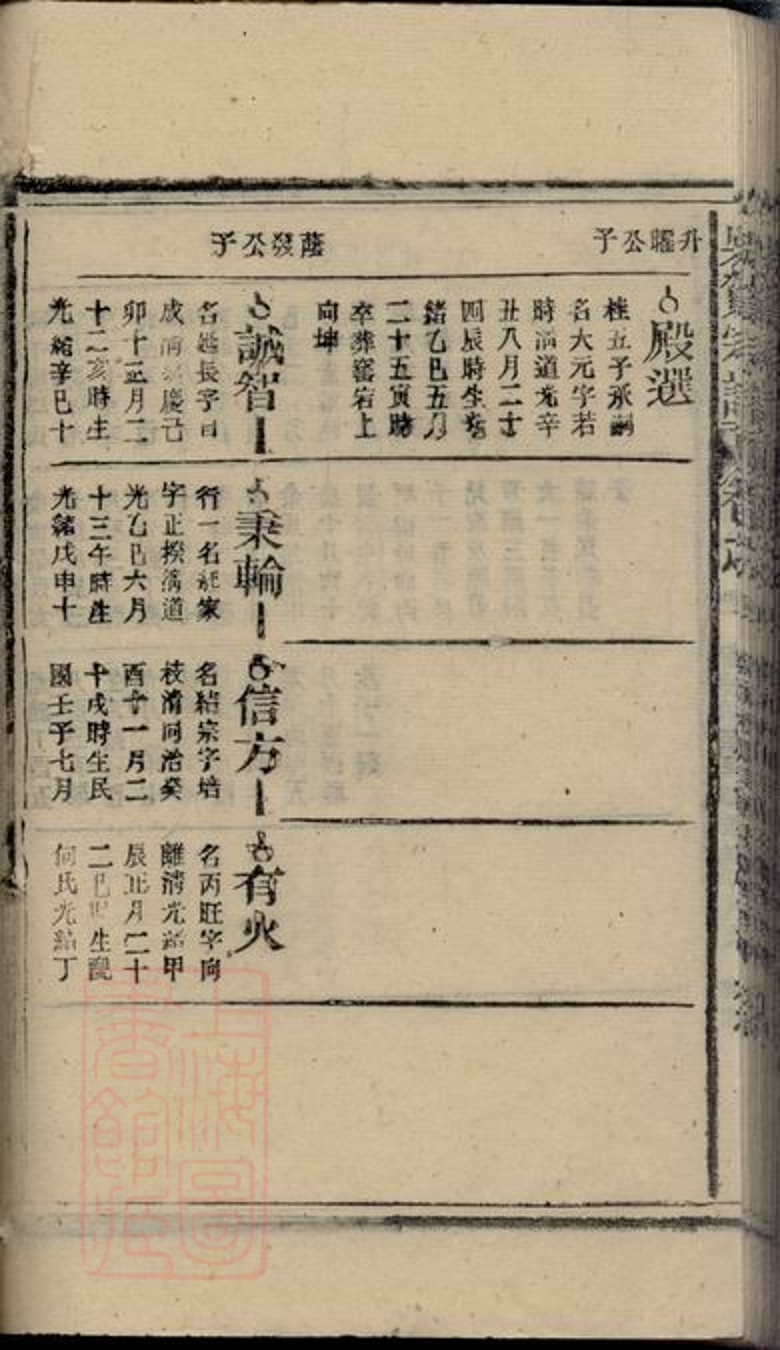 升曜公子
殿選
桂五子承嗣
名大元字若
時淸道光辛
丑八月二十
四辰時生
緒乙巳五月
二十五寅時
卒葬窑宕上
向坤
蔭發公子
誠智
名 長字曰
成淸嘉慶己
卯十二月二
十二亥時生
光緒辛巳十
秉輪
行一名 家
字正揆淸道
光乙巳六月
十三午時生
光緒戊申十
信方
名結宗字培
枝淸同治癸
酉十一月二
十戌時生民
國壬子七月
有火
名丙旺字向
離淸光緒甲
辰正月二十
二巳時生配
何氏光緒丁
上海圖
書館藏